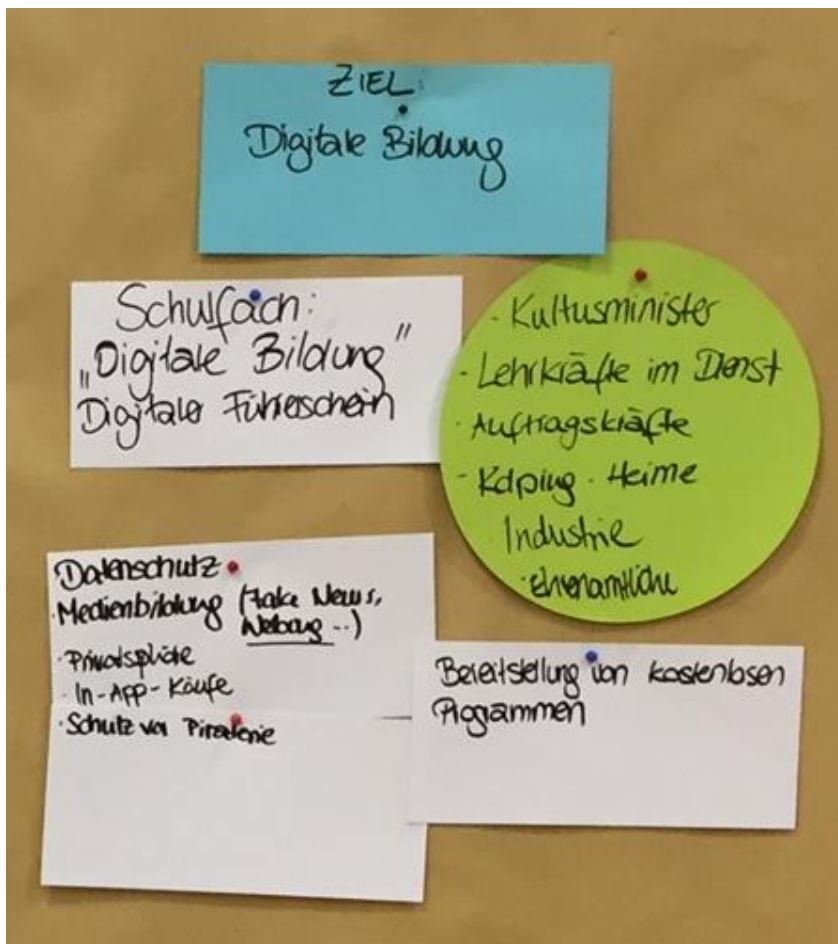 ZIEL:
Digitale Bildung
Schulfach:
„Digitale Bildung"
Digitaler Führerschein
- Kultusminister
- Lehrkräfte im Dienst
· Auftragskräfte
- Kolping · Heime
· Industrie
· Ehrenamtliche
Datenschutz
· Medienbildung (Fake News,
Werbung ..)
· Privatsphäre
· In-App-Käufe
· Schutz vor Piraterie
Bereitstellung von kostenlosen
Programmen